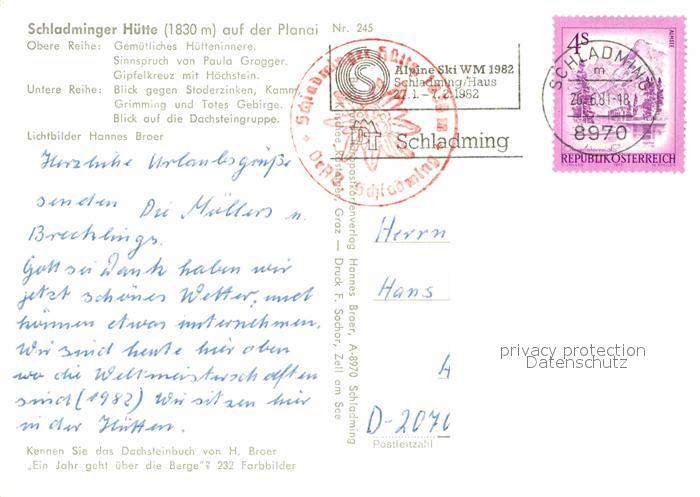 Schladminger Hütte (1830 m) auf der Planai Nr. 245
Obere Reihe: Gemütliches Hütteninnere.
Sinnspruch von Paula Grogger.
Gipfelkreuz mit Höchstein.
Untere Reihe: Blick gegen Stoderzinken, Kamm,
Grimming und Totes Gebirge.
Blick auf die Dachsteingruppe.
Lichtbilder Hannes Broer
Herzliche Urlaubsgrüße
senden Die Müllers u.
Brechlings.
Gott sei Dank haben wir
jetzt schönes Wetter, und
können etwas unternehmen.
Wir sind heute hier oben
wo die Weltmeisterschaften
sind (1982) Wir sitzen hier
in der Hütten.
Kennen Sie das Dachsteinbuch von H. Broer
„Ein Jahr geht über die Berge"? 232 Farbbilder
Ansichtskartenverlag Hannes Broer, A-8970 Schladming
Graz — Druck F. Sochor, Zell am See
Schladminger Hütte
ÖeAV Schladming
Alpine Ski WM 1982
Schladming/Haus
27.1. – 7.2. 1982
Schladming
SCHLADMING
8970
4 S
ALMSEE
REPUBLIK ÖSTERREICH
Herrn
Hans
D-2070
Postleitzahl
privacy protection
Datenschutz